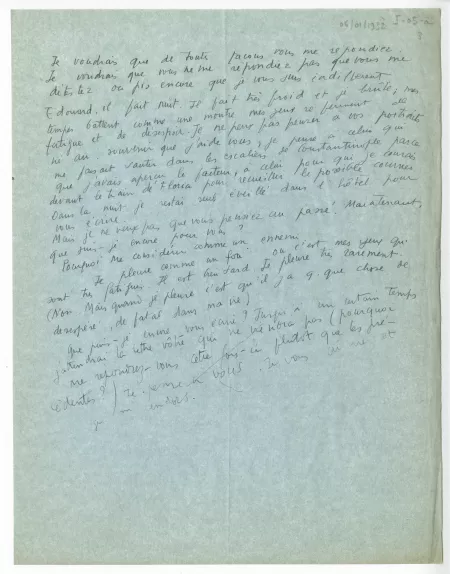 I-05-2
Je voudrais que de toute façons vous me répondiez.
Je voudrais que vous ne me répondiez pas que vous me
détestez ou pis encore que je vous suis indifférent
Edouard. Il fait nuit. Il fait très froid et je brûle, mes
tempes battent comme une montre mes yeux se ferment de
fatigue et de désespoir. Je ne peux pas penser à vos
au souvenir que j'ai de vous, je pense à celui qui
me faisait sauter dans les escaliers de Constantinople parce
que j'avais aperçu le facteur, à celui pour qui je courais
devant le train de Florea pour recueillir le possible courrier
Dans la nuit je restai seul éveillé dans l'hôtel pour
vous écrire.
Mais je ne veux pas que vous pensiez au passé. Maintenant
que suis-je encore pour vous ?
Pourquoi me considérer comme un ennemi
Je pleure comme un fou ou c'est mes yeux qui
sont très fatigués. Il est bien tard. Je pleure très rarement.
(Non Mais quand je pleure c'est qu'il y a q. que chose de
désespéré, de fatal dans ma vie)
Que puis-je encore vous dire ? Jusqu'à un certain temps
j'attendrai la lettre vôtre qui ne viendra pas (pourquoi
me répondrez-vous cette fois-là plutôt que les pré-
cédentes ?) Je pense à vous. Je vous